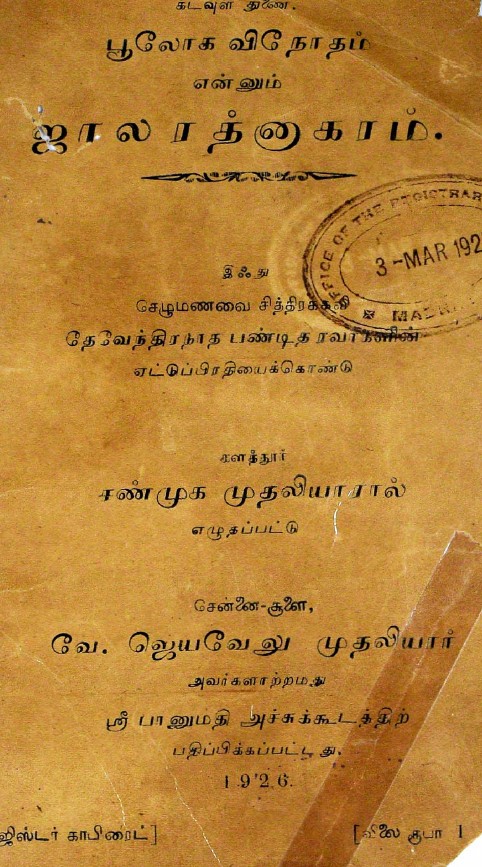 கடவுள் துணை.
பூலோக விநோதம்
என்னும்
ஜால ரத்னாகரம்.
OFFICE OF THE REGISTRAR
3 -MAR 192
இஃது
செழுமணவை சித்திரக்கவி
தேவேந்திரநாத பண்டித ரவர்களின்
ஏட்டுப்பிரதியைக்கொண்டு
களத்தூர்
சண்முக முதலியாரால்
எழுதப்பட்டு
சென்னை-சூளை,
வே. ஜெயவேலு முதலியார்
அவர்களாற்றமது
ஸ்ரீ பானுமதி அச்சுக்கூடத்திற்
பதிப்பிக்கப்பட்டது.
1926.
ஜிஸ்டர் காபிரைட்]
[விலை ரூபா 1